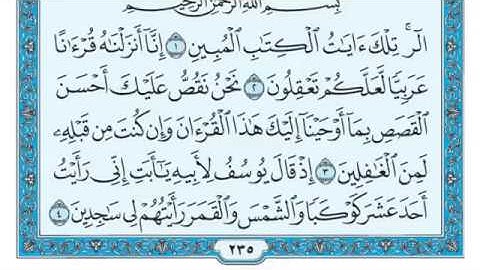 بِسْمِ ٱللَّهِ ٱلرَّحْمَٰنِ ٱلرَّحِيمِ
الٓرۚ تِلْكَ ءَايَٰتُ ٱلْكِتَٰبِ ٱلْمُبِينِ ١ إِنَّآ أَنزَلْنَٰهُ قُرْءَٰنًا
عَرَبِيًّا لَّعَلَّكُمْ تَعْقِلُونَ ٢ نَحْنُ نَقُصُّ عَلَيْكَ أَحْسَنَ
ٱلْقَصَصِ بِمَآ أَوْحَيْنَآ إِلَيْكَ هَٰذَا ٱلْقُرْءَانَ وَإِن كُنتَ مِن قَبْلِهِۦ
لَمِنَ ٱلْغَٰفِلِينَ ٣ إِذْ قَالَ يُوسُفُ لِأَبِيهِ يَٰٓأَبَتِ إِنِّى رَأَيْتُ
أَحَدَ عَشَرَ كَوْكَبًا وَٱلشَّمْسَ وَٱلْقَمَرَ رَأَيْتُهُمْ لِى سَٰجِدِينَ ٤
٢٣٥